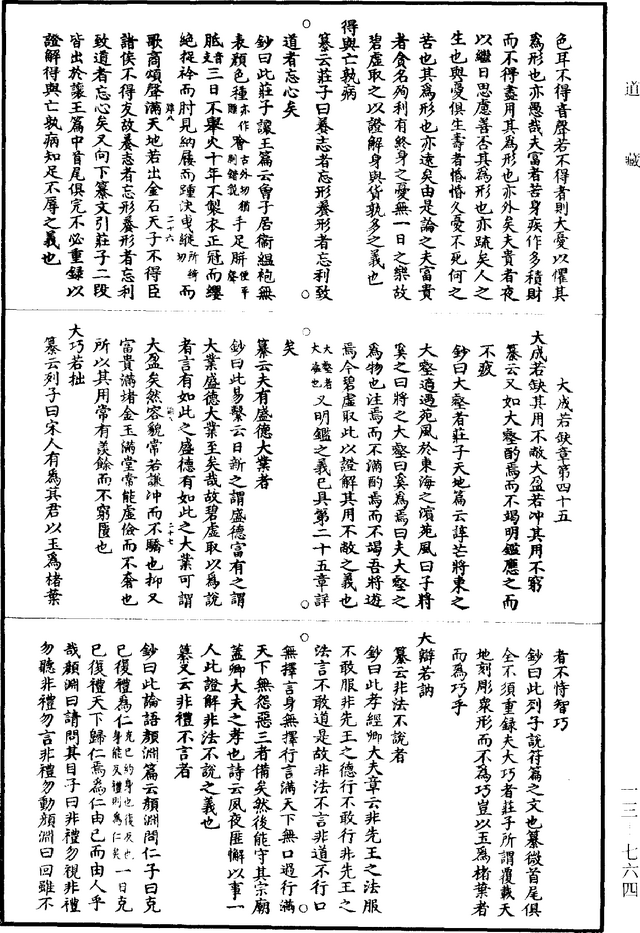 道藏
一三-七六四
色耳不得音聲若不得者則大憂以懼其
為形也亦愚哉夫富者苦身疾作多積財
而不得盡用其為形也亦外矣夫貴者夜
以繼日思慮善否其為形也亦疏矣人之
生也與憂俱生壽者惛惛久憂不死何之
苦也其為形也亦遠矣由是論之夫富貴
者貪名殉利有終身之憂無一日之樂故
碧虛取之以證解身與貨孰多之義也
得與亡孰病
纂云莊子曰養志者忘形養形者忘利致
道者忘心矣
鈔曰此莊子讓王篇云曾子居衛緼袍無
表顏色種噲手足胼
胝三日不舉火十年不製衣正冠而纓
絕捉衿而肘見納屨而踵決曳縰而
歌商頌聲滿天地若出金石天子不得臣
諸侯不得友故養志者忘形養形者忘利
致道者忘心矣又向下纂文引莊子二段
皆出於讓王篇中首尾俱完不必重録以
證解得與亡孰病知足不辱之義也
大成若缺章第四十五
大成若缺其用不敝大盈若冲其用不窮
纂云又如大壑酌焉而不竭明鑑應之而
不疲
鈔曰大壑者莊子天地篇云諄芒將東之
大壑適遇苑風於東海之濱苑風曰子將
奚之曰將之大壑曰奚為焉曰夫大壑之
為物也注焉而不滿酌焉而不竭吾將遊
焉今碧虛取此以證解其用不敝之義也
大壑者大海也又明鑑之義已具第二十五章詳
矣
纂云夫有盛德大業者
鈔曰此易繫云日新之謂盛德富有之謂
大業盛德大業至矣哉故碧虛取以為說
者言有如此之盛德有如此之大業可謂
大盈矣然容貌常若謙冲而不驕也抑又
富貴滿堵金玉滿堂常能虛儉而不奢也
所以其用常有羨餘而不窮匱也
大巧若拙
纂云列子曰宋人有為其君以玉為楮葉
者不恃智巧
鈔曰此列子說符篇之文也纂微首尾俱
全不須重録夫大巧者莊子所謂覆載天
地刻彫衆形而不為巧豈以玉為楮葉者
而為巧乎
大辯若訥
纂云非法不說者
鈔曰此孝經卿大夫章云非先王之法服
不敢服非先王之德行不敢行非先王之
法言不敢道是故非法不言非道不行口
無擇言身無擇行言滿天下無口過行滿
天下無怨惡三者備矣然後能守其宗廟
蓋卿大夫之孝也詩云夙夜匪懈以事一
人此證解非法不說之義也
纂又云非禮不言者
鈔曰此論語顏淵篇云顏淵問仁子曰克
己復禮為仁克己約身也復反也身能反禮則為仁矣一日克
己復禮天下歸仁焉為仁由己而由人乎
哉顏淵曰請問其目子曰非禮勿視非禮
勿聽非禮勿言非禮勿動顏淵曰回雖不